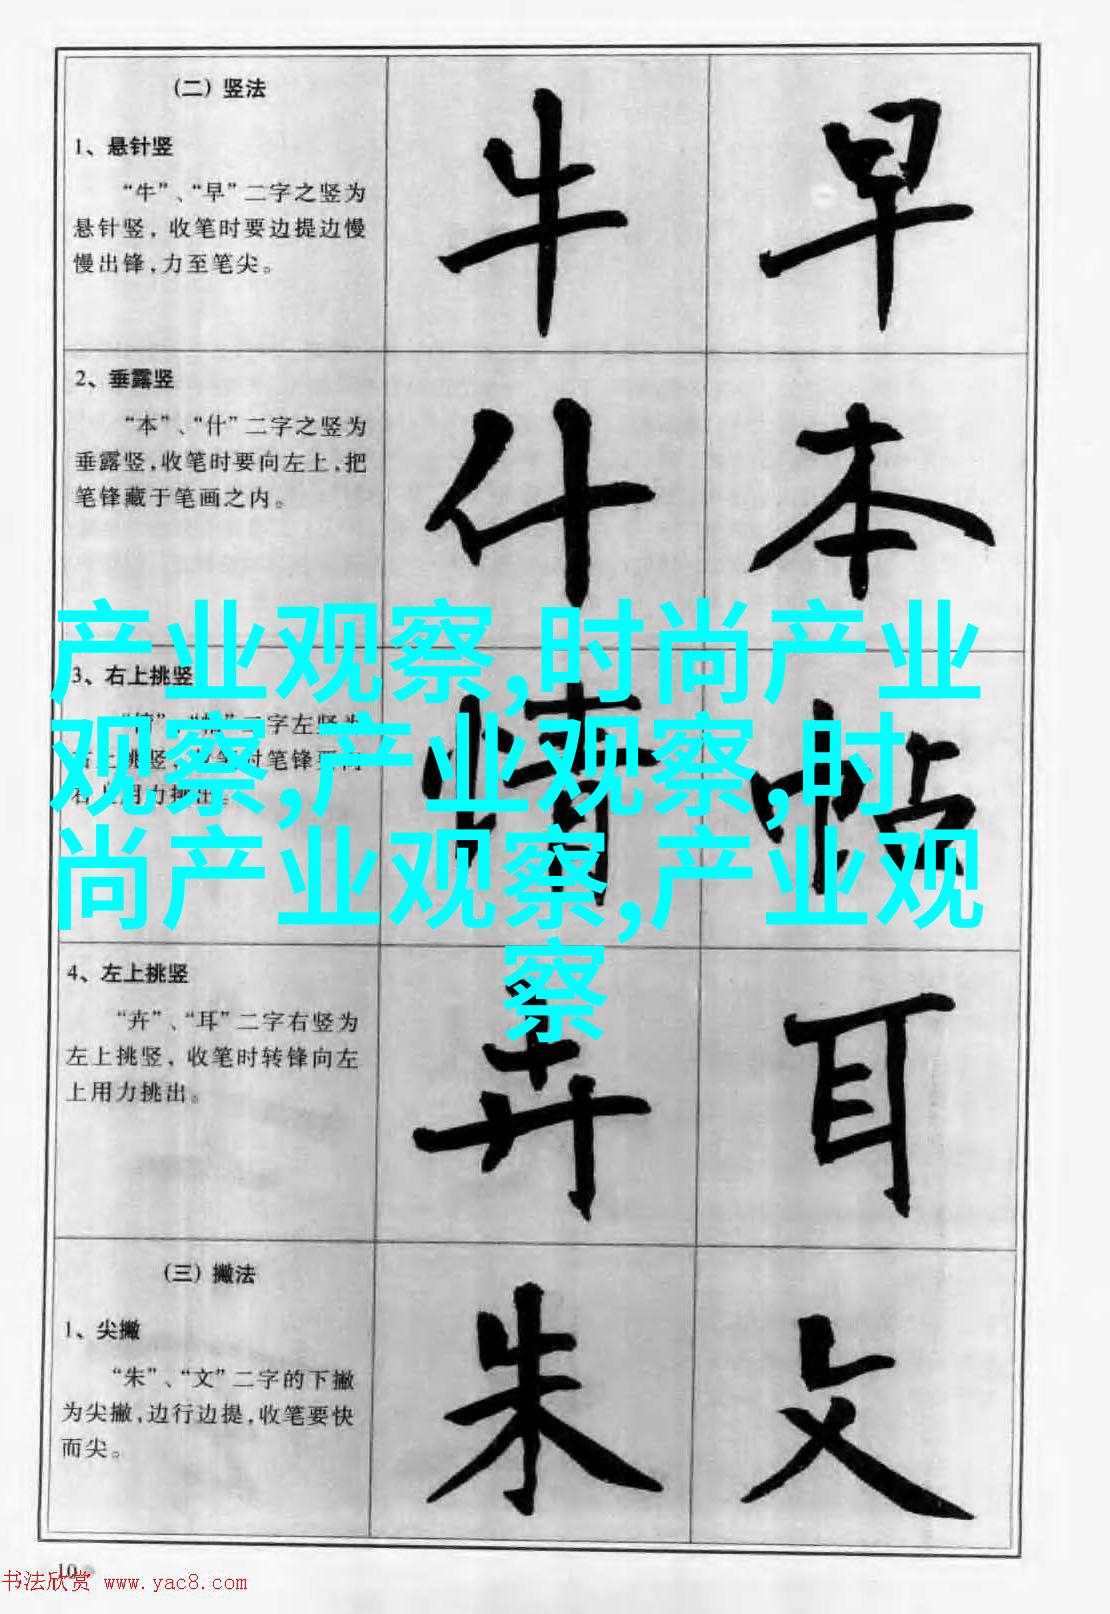 （二）竖法
1、悬针竖
“牛”、“早”二字之竖为
悬针竖，收笔时要边提边慢
慢出锋，力至笔尖。
牛 早
2、垂露竖
“本”、“什”二字之竖为
垂露竖，收笔时要向左上，把
笔锋藏于笔画之内。
什 本
产业观察,时尚产业
观察,产业观察,时
尚产业观察,产业观
察
3、右上挑竖
二字左竖为
右上挑竖，收笔时笔锋要向
右上用力挑出。
情 帖
4、左上挑竖
“卉”、“耳”二字右竖为
左上挑竖，收笔时转锋向左
上用力挑出。
卉 耳
（三）撇法
1、尖撇
“朱”、“文”二字的下撇
为尖撇，边行边提，收笔要快
而尖。
朱 文
10
书法欣赏 www.yac8.com